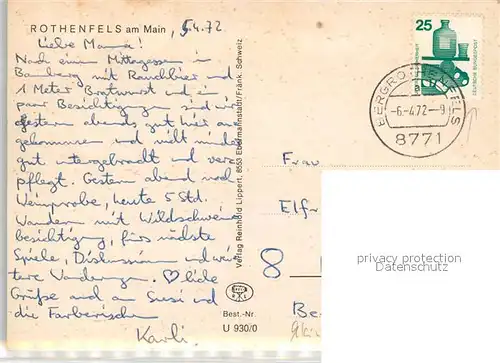 ROTHENFELS am Main, 5.4.72.
Liebe Mama!
Nach einem Mittagessen in
Bamberg mit Rauchbier und
1 Meter Bratwurst und ein
paar Besichtigungen sind wir
gestern abends gut hier an-
gekommen und nicht minder
gut untergebracht und ver-
pflegt. Gestern abend noch
Weinprobe, heute 5 Std.
Wandern mit Wildschwein-
besichtigung, fürs nächste
Spiele, Diskussionen und wei-
tere Wanderungen. ♡liche
Grüße auch an Susi und
die Farberischen
Karli.
Verlag Reinhold Lippert, 8553 Ebermannstadt/Fränk. Schweiz
Best.-Nr.
U 930/0
25
DEUTSCHE BUNDESPOST
BERGROTHENFELS
-6.-4.72-9
8771
Frau
Elfr
8
Be
privacy protection
Datenschutz